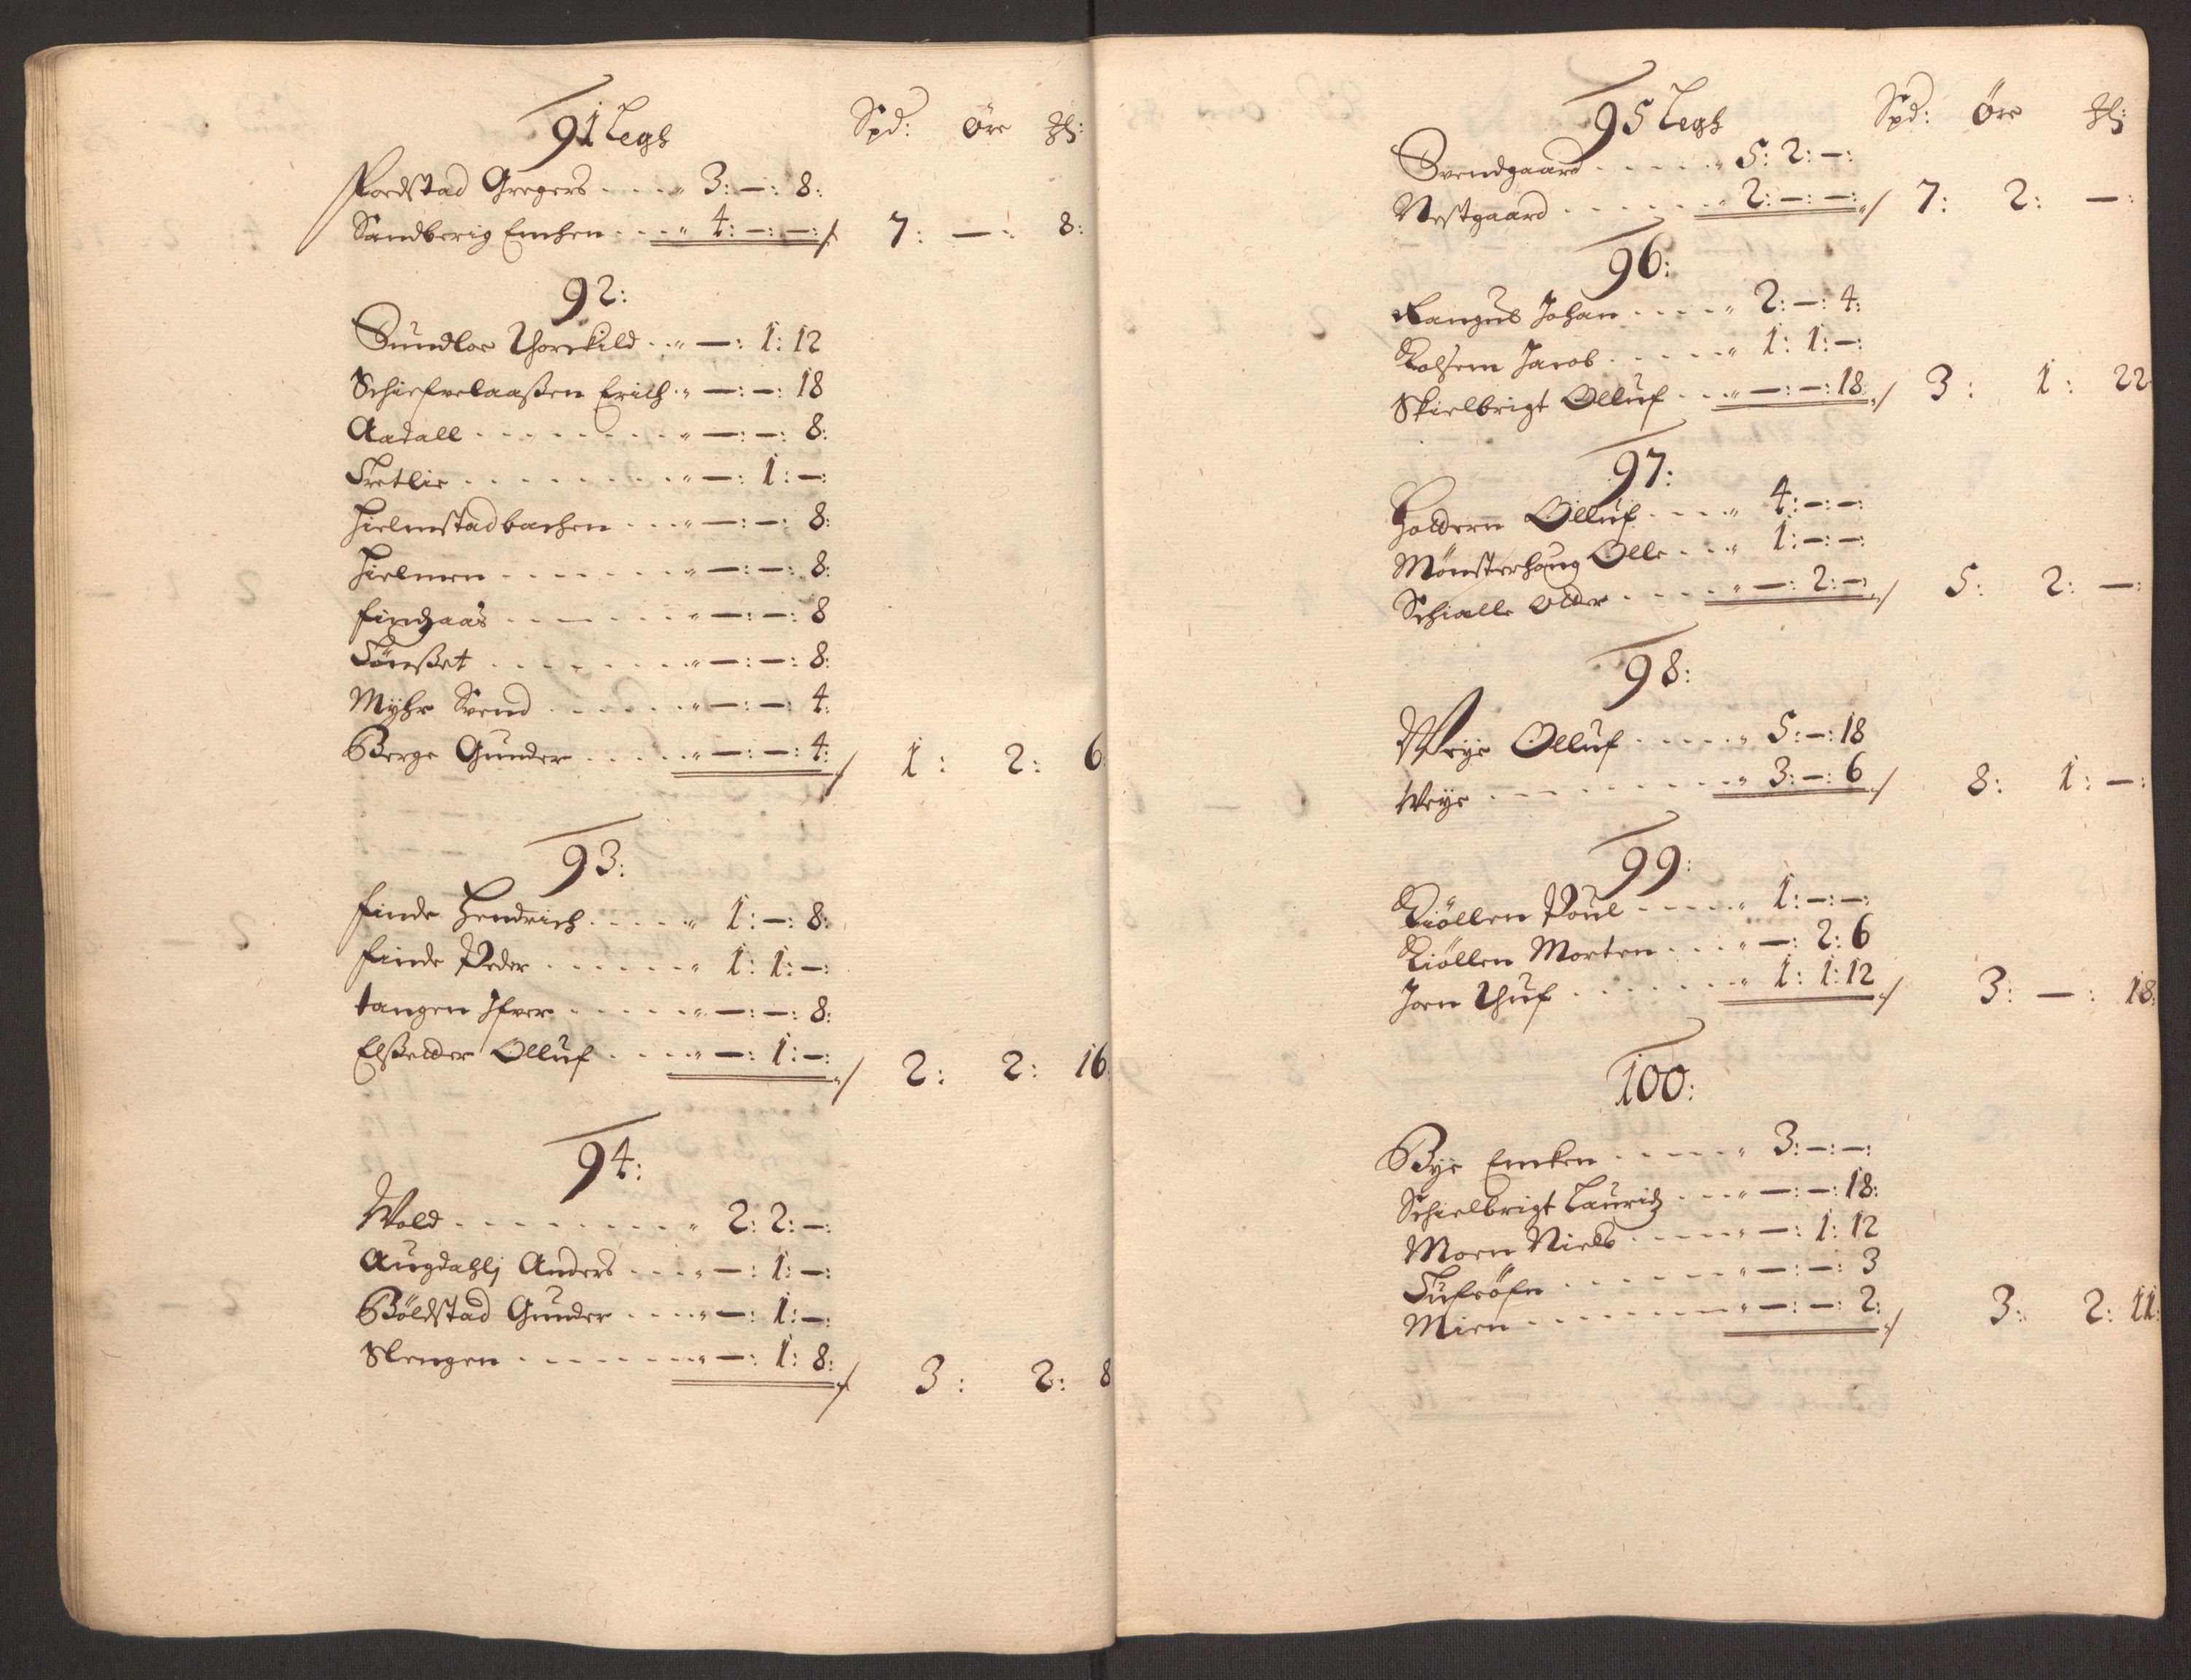 91 Legh Spd: Öre ℔:
Rordstad Gregers . . . . 3: — : 8:
Sandberig Emhen . . . 4: — : — : 7: — : 8:
92:
Sundloe Thorchild . . — : 1: 12
Schiefvelaaßen Erich . — : — : 18
Aadall . . . . . . . . — : — : 8:
Tretlie . . . . . . . . — : 1: — :
Hielmstadbachen . . . — : — : 8:
Hielmen . . . . . . . — : — : 8:
Findzaas . . . . . . . — : — : 8
Tönßet . . . . . . . . — : — : 8:
Myhr Svend . . . . . . — : — : 4:
Berge Gunder . . . . . — : — : 4: 1: 2: 6
93:
Finde Hendrich . . . . . 1: — : 8:
Finde Peder . . . . . . 1: 1: — :
tangen Ifver . . . . . . — : — : 8:
Elßetter Olluf . . . . . — : 1: — : 2: 2: 16
94:
Wold . . . . . . . . . 2: 2: — :
Augdahlj Anders . . . . — : 1: — :
Böldstad Gunder . . . . — : 1: — :
Slengen . . . . . . . . — : 1: 8: 3: 2: 8
95 Legh Spd: Öre ℔:
Svendgaard . . . . . . 5: 2: — :
Nestgaard . . . . . . . 2: — : — : 7: 2: — :
96:
Rangnes Johan . . . . . 2: — : 4:
Rolsem Jacob . . . . . . 1: 1: — :
Skielbrigt Olluf . . . — : — : 18: 3: 1: 22
97:
Holdern Olluf . . . . . 4: — : — :
Mönsterhaug Olle . . . 1: — : — :
Schialle Older . . . . . — : 2: — : 5: 2: — :
98:
Weye Olluf . . . . . . 5: — : 18
Weye . . . . . . . . . 3: — : 6 8: 1: — :
99:
Kiöllen Poul . . . . . 1: — : — :
Kiöllen Morten . . . . — : 2: 6
Joen Thuf . . . . . . . 1: 1: 12 3: — : 18:
100:
Bye Emken . . . . . . 3: — : — :
Schielbrigt Lauridz . . . — : — : 18:
Moen Niels . . . . . . — : 1: 12
Tufröfn . . . . . . . . — : — : 3
Mien . . . . . . . . . — : — : 2: 3: 2: 11: